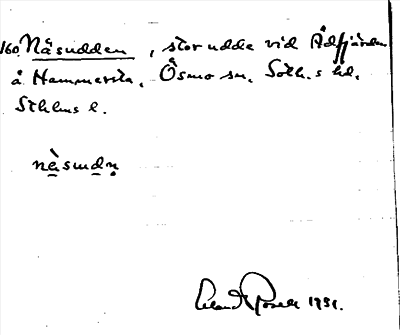 160. Näsudden, stor udde vid Ådfjärden
å Hammersta, Ösmo sn. Soth.s hd.
Sthlms l.
nèsudn̥
Erland Rosell 1951.